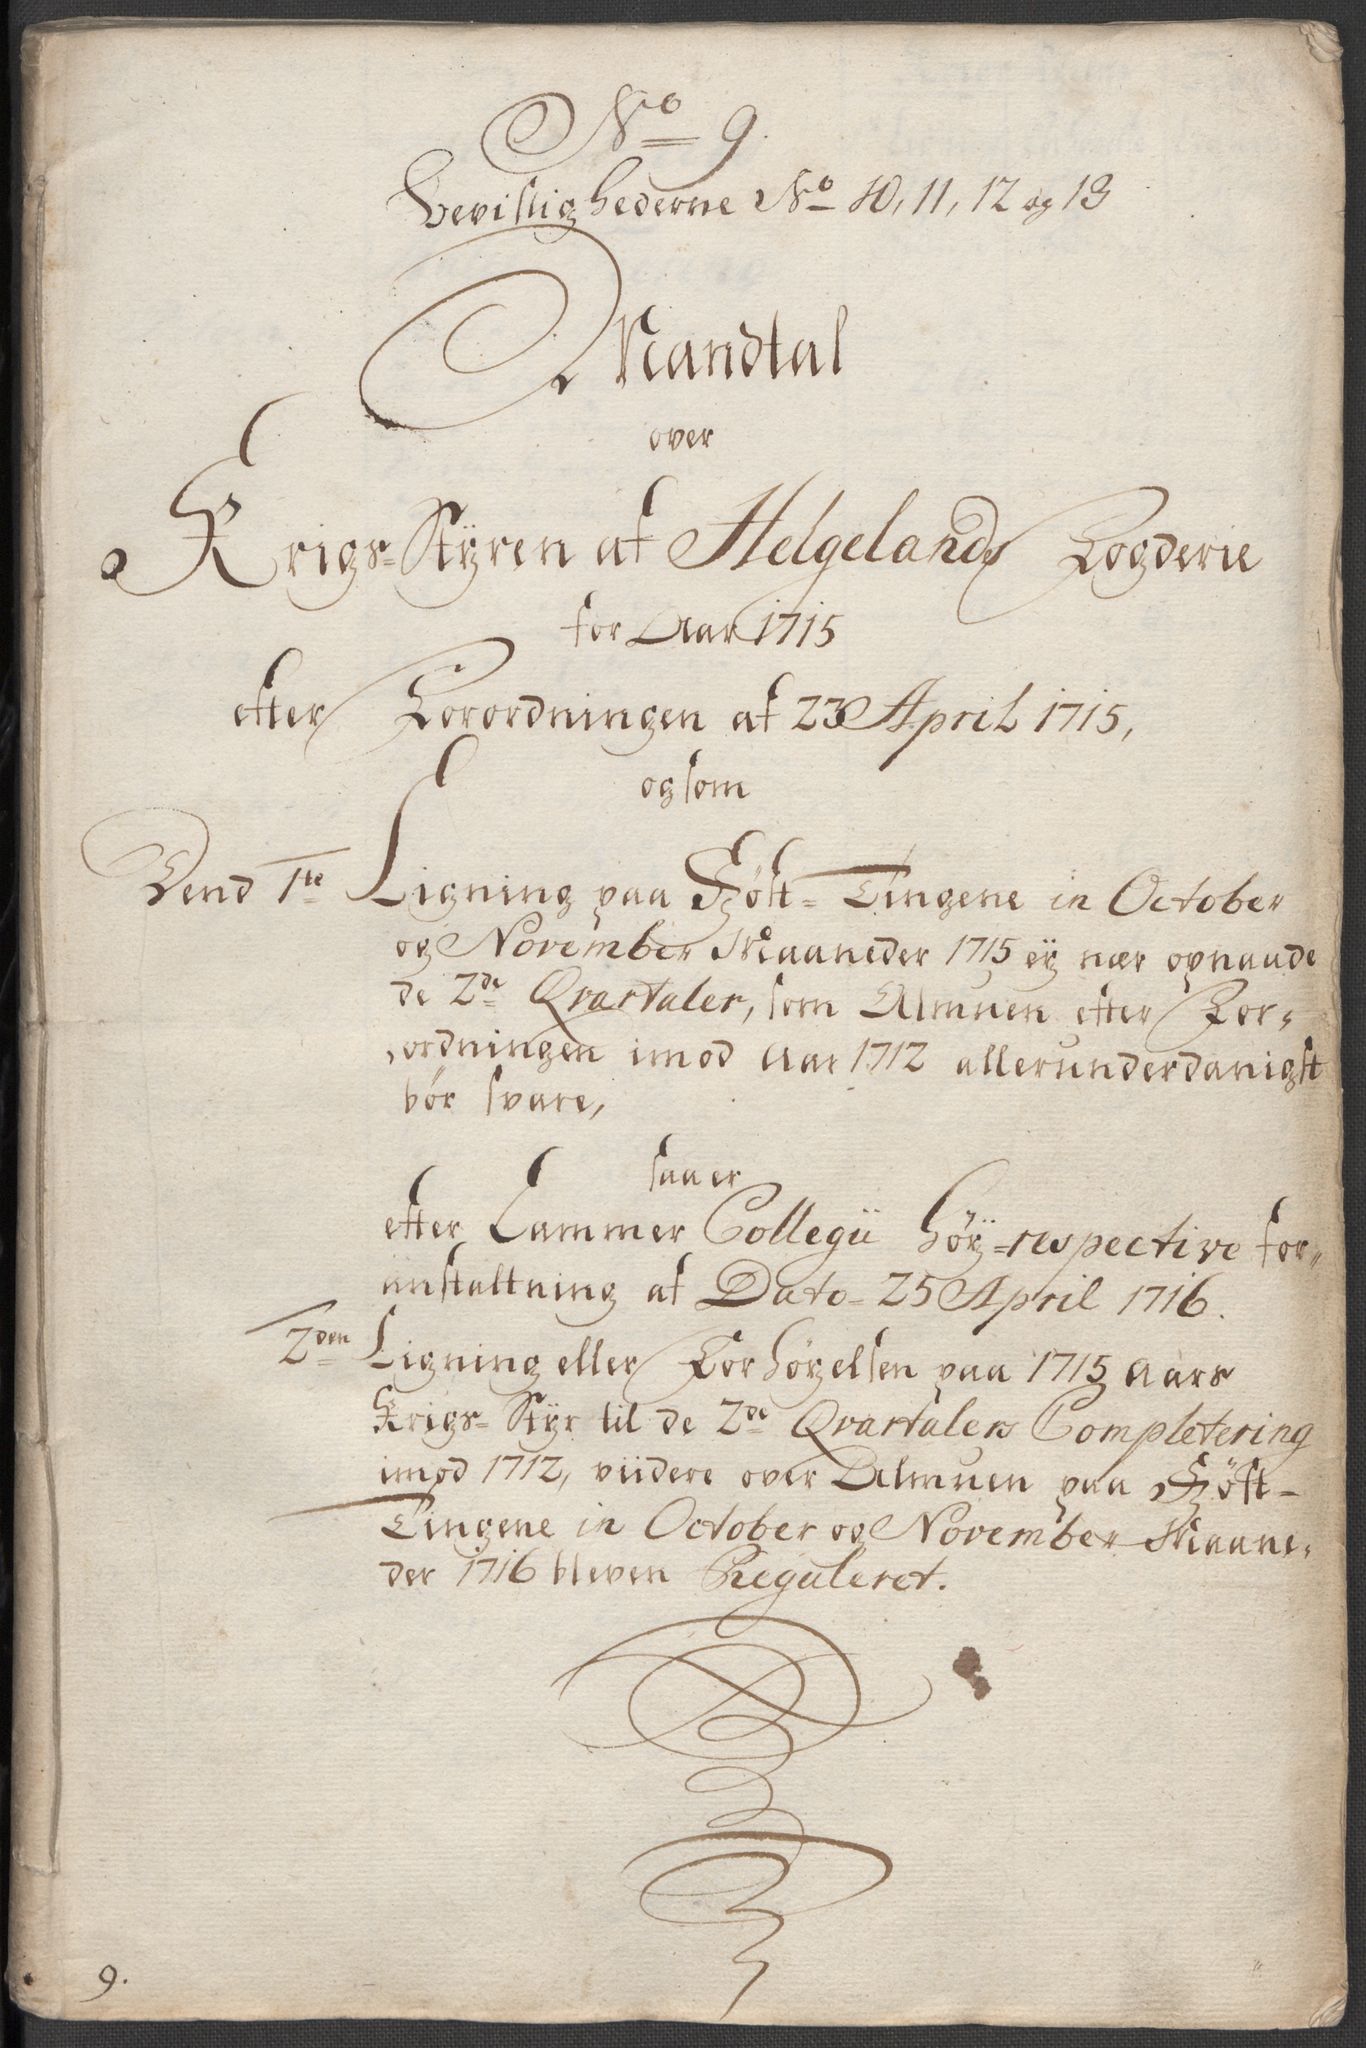 No 9.
Bevislighederne No 10, 11, 12 og 13
Mandtal
over
Krigs=Styren af Helgelands Fogderie
for Aar 1715
efter Forordningen af 23 April 1715,
og som
Dend 1te Ligning paa Höst=Tingene in October
og November Maaneder 1715 eÿ nær opnaaede
de 2de Qvartaler, som Almuen efter For=
ordningen imod Aar 1712 allerunderdanigst
bör svare,
saa er
efter Cammer Collegii höÿ=respective for=
anstaltning af Dato 25 April 1716.
2den Ligning eller Forhöÿelsen paa 1715 Aars
Krigs=Styr til de 2de Qvartalers Completering
imod 1712, viidere over Almuen paa Höst=
Tingene in October og November Maane=
der 1716 bleven Reguleret.
9.